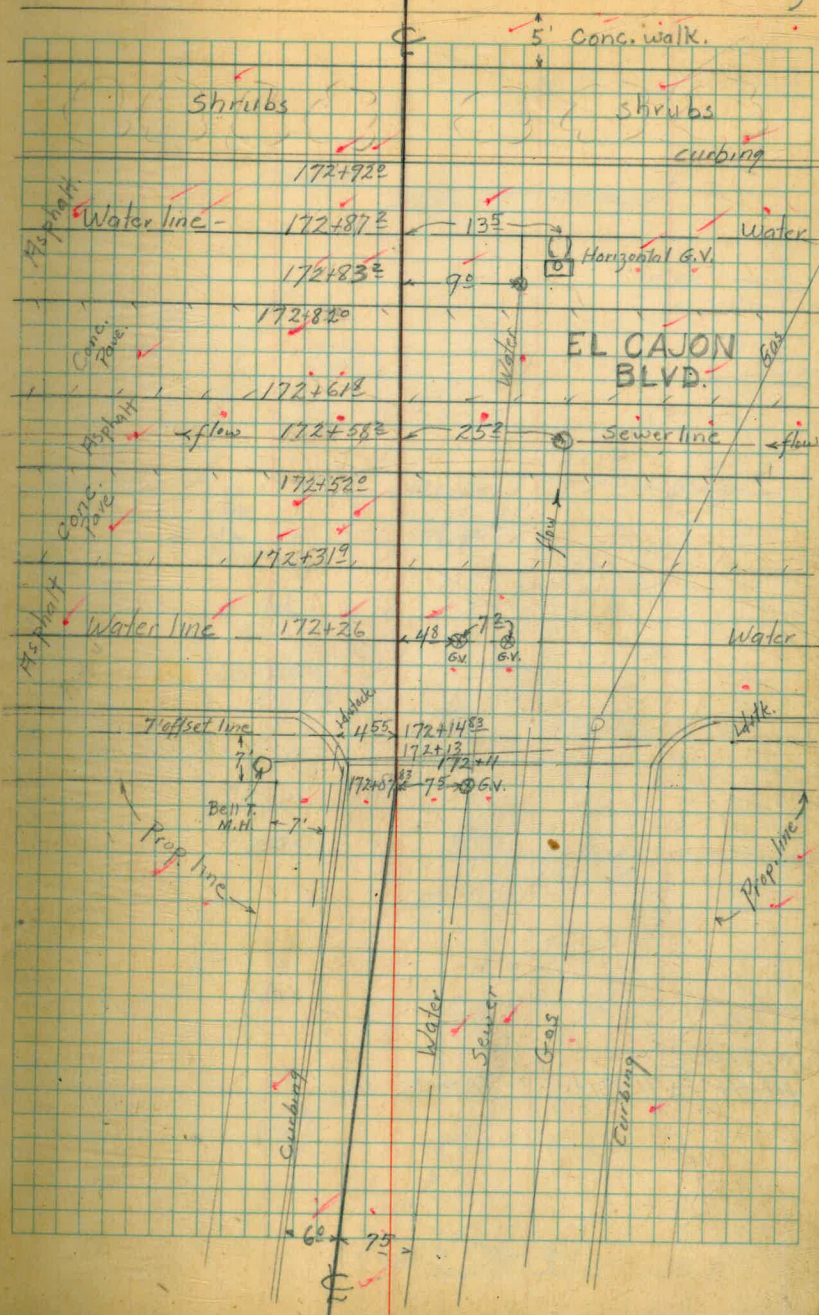 ℄ 5' Conc. walk.
Shrubs shrubs
curbing
172+92⁰
Asphalt.
Water line - 172+87² 13⁵ Water
Horizontal G.V.
172+83² 9⁰
172+82⁰
Conc. Pave.
Water
EL CAJON
BLVD.
Gas
172+61⁸
Asphalt
←flow 172+58² 25² Sewer line ←flow
172+52⁰
Conc. Pave
flow
172+31⁹
Asphalt
Water line 172+26 4⁸ 7² Water
G.V. G.V.
7' offset line 4⁵⁵ 172+14⁸³
172+13
7' 172+11
7⁵ G.V.
Bell T.
M.H. 7'
Prop. line
Prop. line
Water
Sewer
Gas
Curbing
Curbing
6⁰ 7⁵
℄